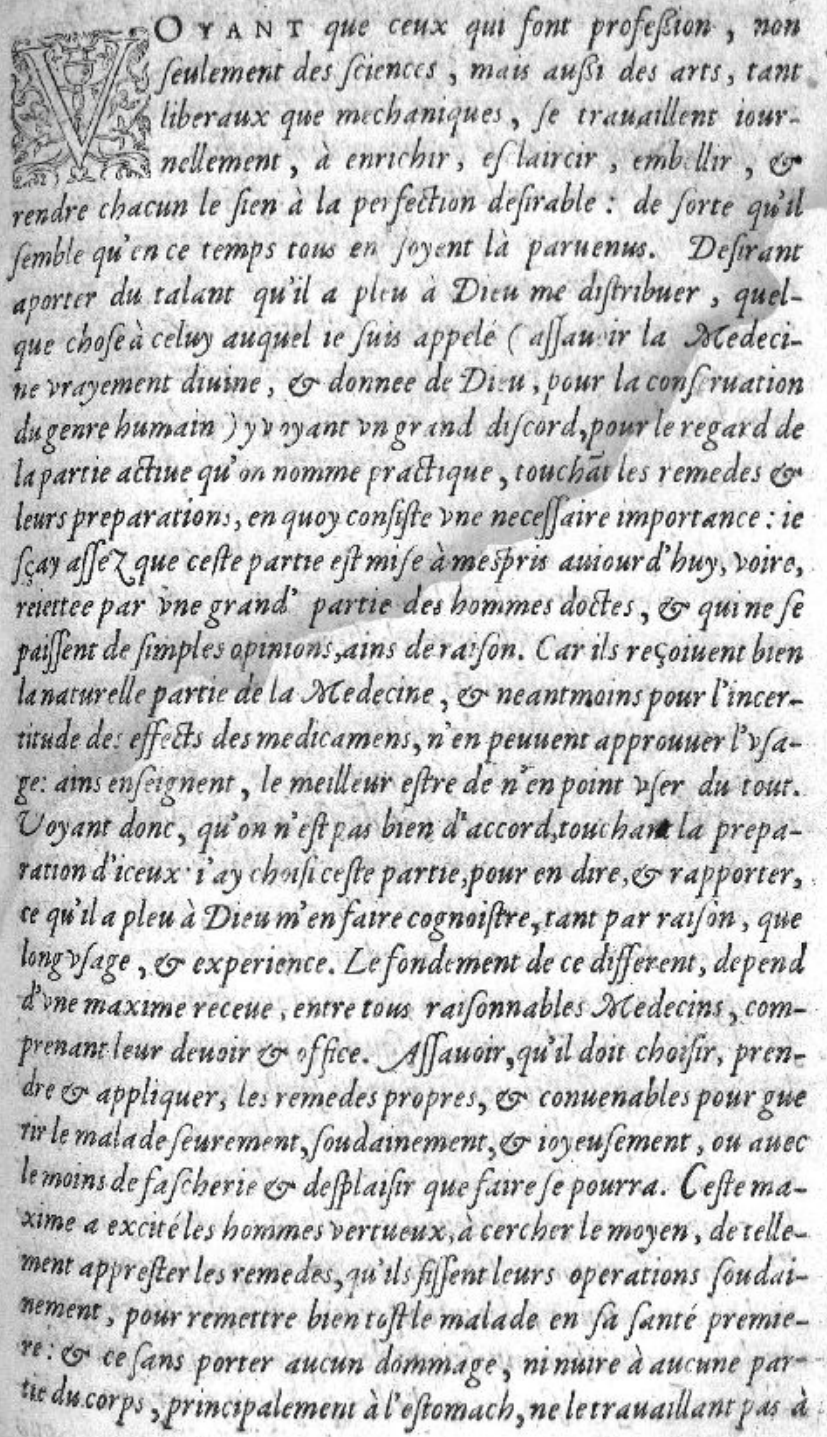 VOYANT que ceux qui font profeſſion, non
ſeulement des ſciences, mais auſſi des arts, tant
liberaux que mechaniques, ſe trauaillent iour-
nellement, à enrichir, eſclaircir, embellir, &
rendre chacun le ſien à la perfection deſirable: de ſorte qu'il
ſemble qu'en ce temps tous en ſoyent là paruenus. Deſirant
aporter du talant qu'il a pleu à Dieu me diſtribuer, quel-
que choſe à celuy auquel ie ſuis appelé (aſſauoir la Medeci-
ne vrayement diuine, & donnee de Dieu, pour la conſeruation
du genre humain) y voyant vn grand diſcord, pour le regard de
la partie actiue qu'on nomme practique, touchāt les remedes &
leurs preparations, en quoy conſiſte vne neceſſaire importance: ie
ſçay aſſez que ceſte partie eſt miſe à meſpris auiourd'huy, voire,
reiettee par vne grand' partie des hommes doctes, & qui ne ſe
paiſſent de ſimples opinions, ains de raiſon. Car ils reçoiuent bien
la naturelle partie de la Medecine, & neantmoins pour l'incer-
titude des effects des medicamens, n'en peuuent approuuer l'vſa-
ge: ains enſeignent, le meilleur eſtre de n'en point vſer du tout.
Voyant donc, qu'on n'eſt pas bien d'accord, touchant la prepa-
ration d'iceux: i'ay choiſi ceſte partie, pour en dire, & rapporter,
ce qu'il a pleu à Dieu m'en faire cognoiſtre, tant par raiſon, que
long vſage, & experience. Le fondement de ce different, depend
d'vne maxime receue, entre tous raiſonnables Medecins, com-
prenant leur deuoir & office. Aſſauoir, qu'il doit choiſir, pren-
dre & appliquer, les remedes propres, & conuenables pour gue
rir le malade ſeurement, ſoudainement, & ioyeuſement, ou auec
le moins de faſcherie & deſplaiſir que faire ſe pourra. Ceſte ma-
xime a excité les hommes vertueux, à cercher le moyen, de telle-
ment appreſter les remedes, qu'ils fiſſent leurs operations ſoudai-
nement, pour remettre bien toſt le malade en ſa ſanté premie-
re: & ce ſans porter aucun dommage, ni nuire à aucune par-
tie du corps, principalement à l'eſtomach, ne le trauaillant pas à